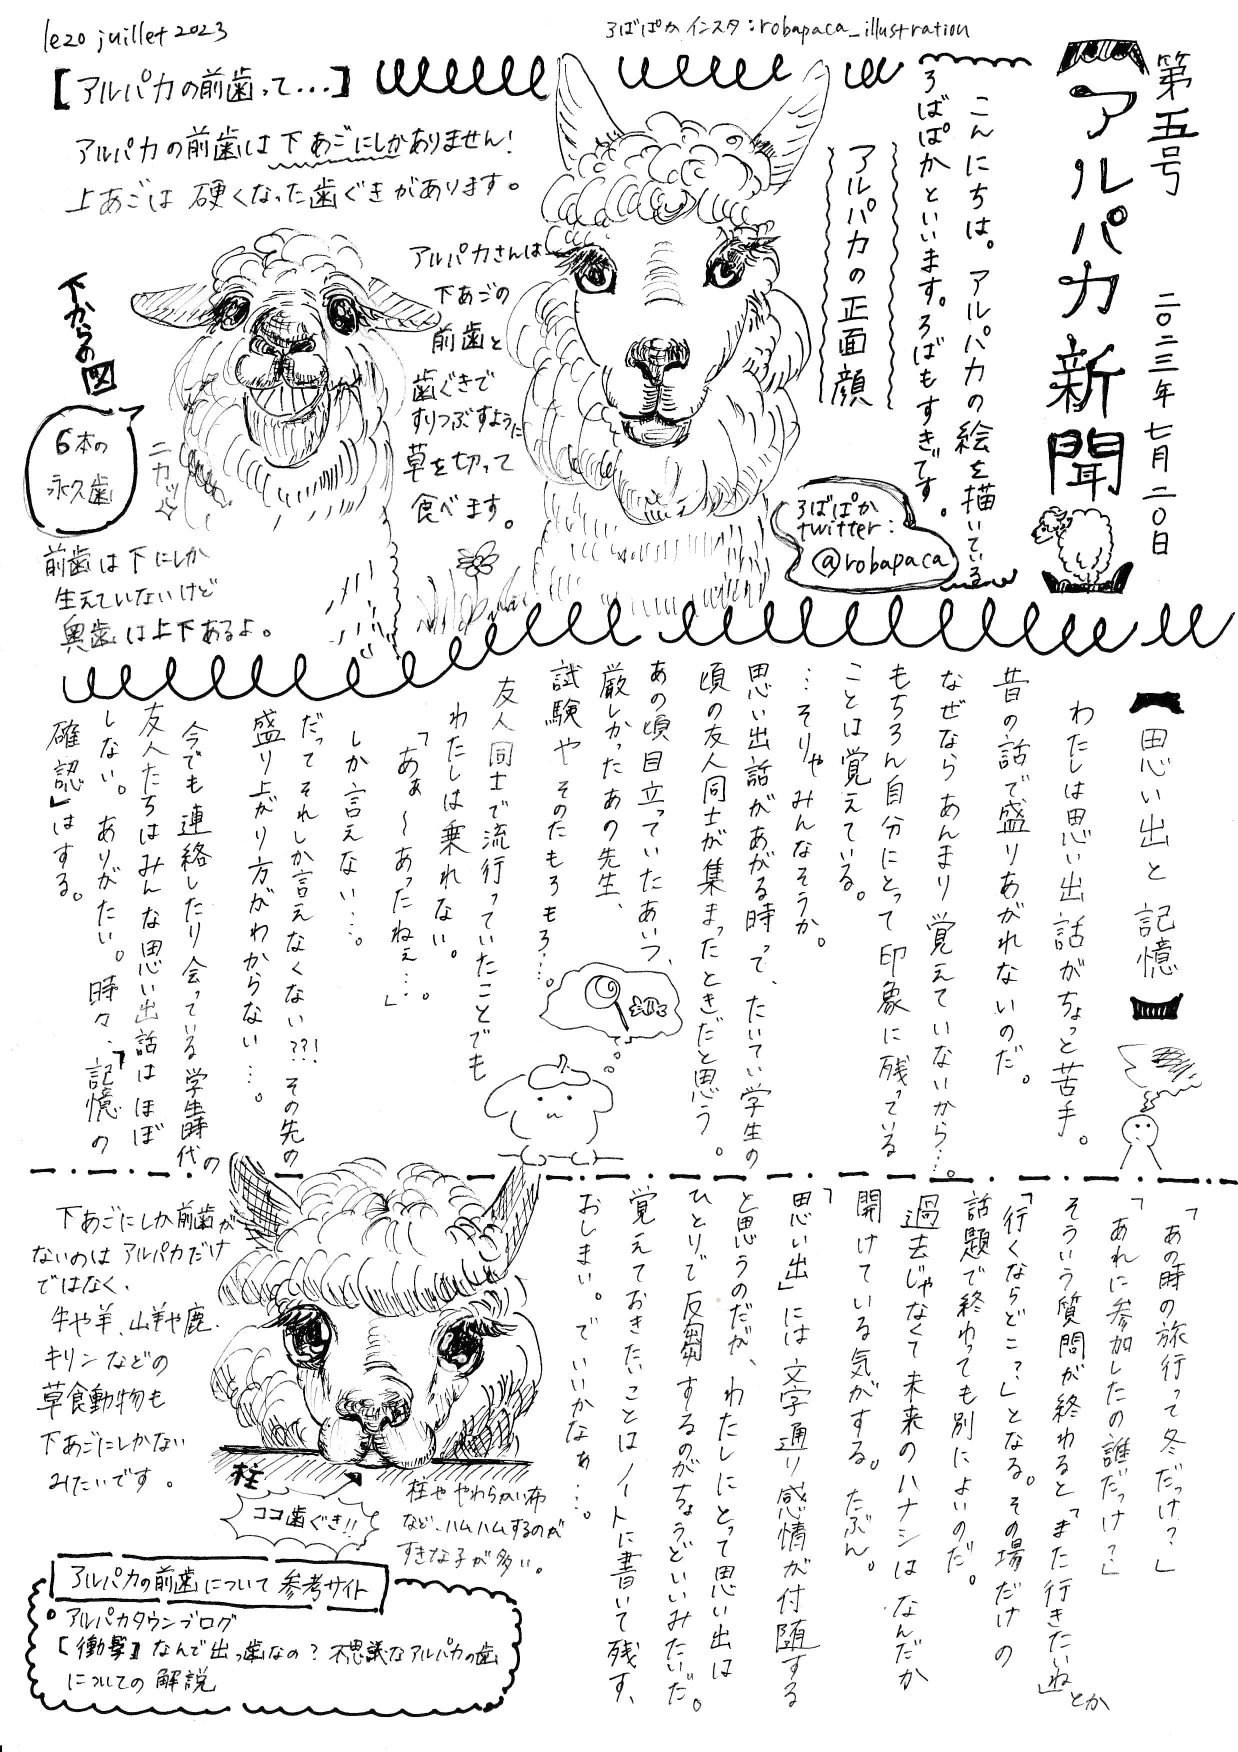 le20 juillet 2023
ろばぱかインスタ:robapaca_illustration
第五号
二〇二三年七月二〇日
アルパカ新聞
こんにちは。アルパカの絵を描いている
ろばぱかといいます。ろばもすきです。
アルパカの正面顔
ろばぱか
twitter:
@robapaca
【アルパカの前歯って...】
アルパカの前歯は下あごにしかありません!
上あごは硬くなった歯ぐきがあります。
アルパカさんは
下あごの
前歯と
歯ぐきで
すりつぶすように
草を切って
食べます。
下からの図
6本の
永久歯
ニカッ
前歯は下にしか
生えていないけど
奥歯は上下あるよ。
思い出と記憶
わたしは思い出話がちょっと苦手。
昔の話で盛りあがれないのだ。
なぜならあんまり覚えていないから...。
もちろん自分にとって印象に残っている
ことは覚えている。
...そりゃみんなそうか。
思い出話があがる時って、たいてい学生の
頃の友人同士が集まったときだと思う。
あの頃目立っていたあいつ、
厳しかったあの先生、
試験やそのたもろもろ...。
友人同士で流行っていたことでも
わたしは乗れない。
「あぁ〜あったねぇ...。」
しか言えない...。
だってそれしか言えなくない??!その先の
盛り上がり方がわからない...。
今でも連絡したり会っている学生時代の
友人たちはみんな思い出話はほぼ
しない。ありがたい。時々、「記憶の
確認」はする。
「あの時の旅行って冬だっけ?」
「あれに参加したの誰だっけ?」
そういう質問が終わると「また行きたいね」とか
「行くならどこ?」となる。その場だけの
話題で終わっても別によいのだ。
過去じゃなくて未来のハナシはなんだか
開けている気がする。たぶん。
「思い出」には文字通り感情が付随する
と思うのだが、わたしにとって思い出は
ひとりで反芻するのがちょうどいいみたいだ。
覚えておきたいことはノートに書いて残す、
おしまい。でいいかなぁ...。
下あごにしか前歯が
ないのはアルパカだけ
ではなく、
牛や羊、山羊や鹿、
キリンなどの
草食動物も
下あごにしかない
みたいです。
柱
ココ歯ぐき!!
柱ややわらかい布
など、ハムハムするのが
すきな子が多い。
アルパカの前歯について参考サイト
アルパカタウンブログ
【衝撃】なんで出っ歯なの?不思議なアルパカの歯
についての解説